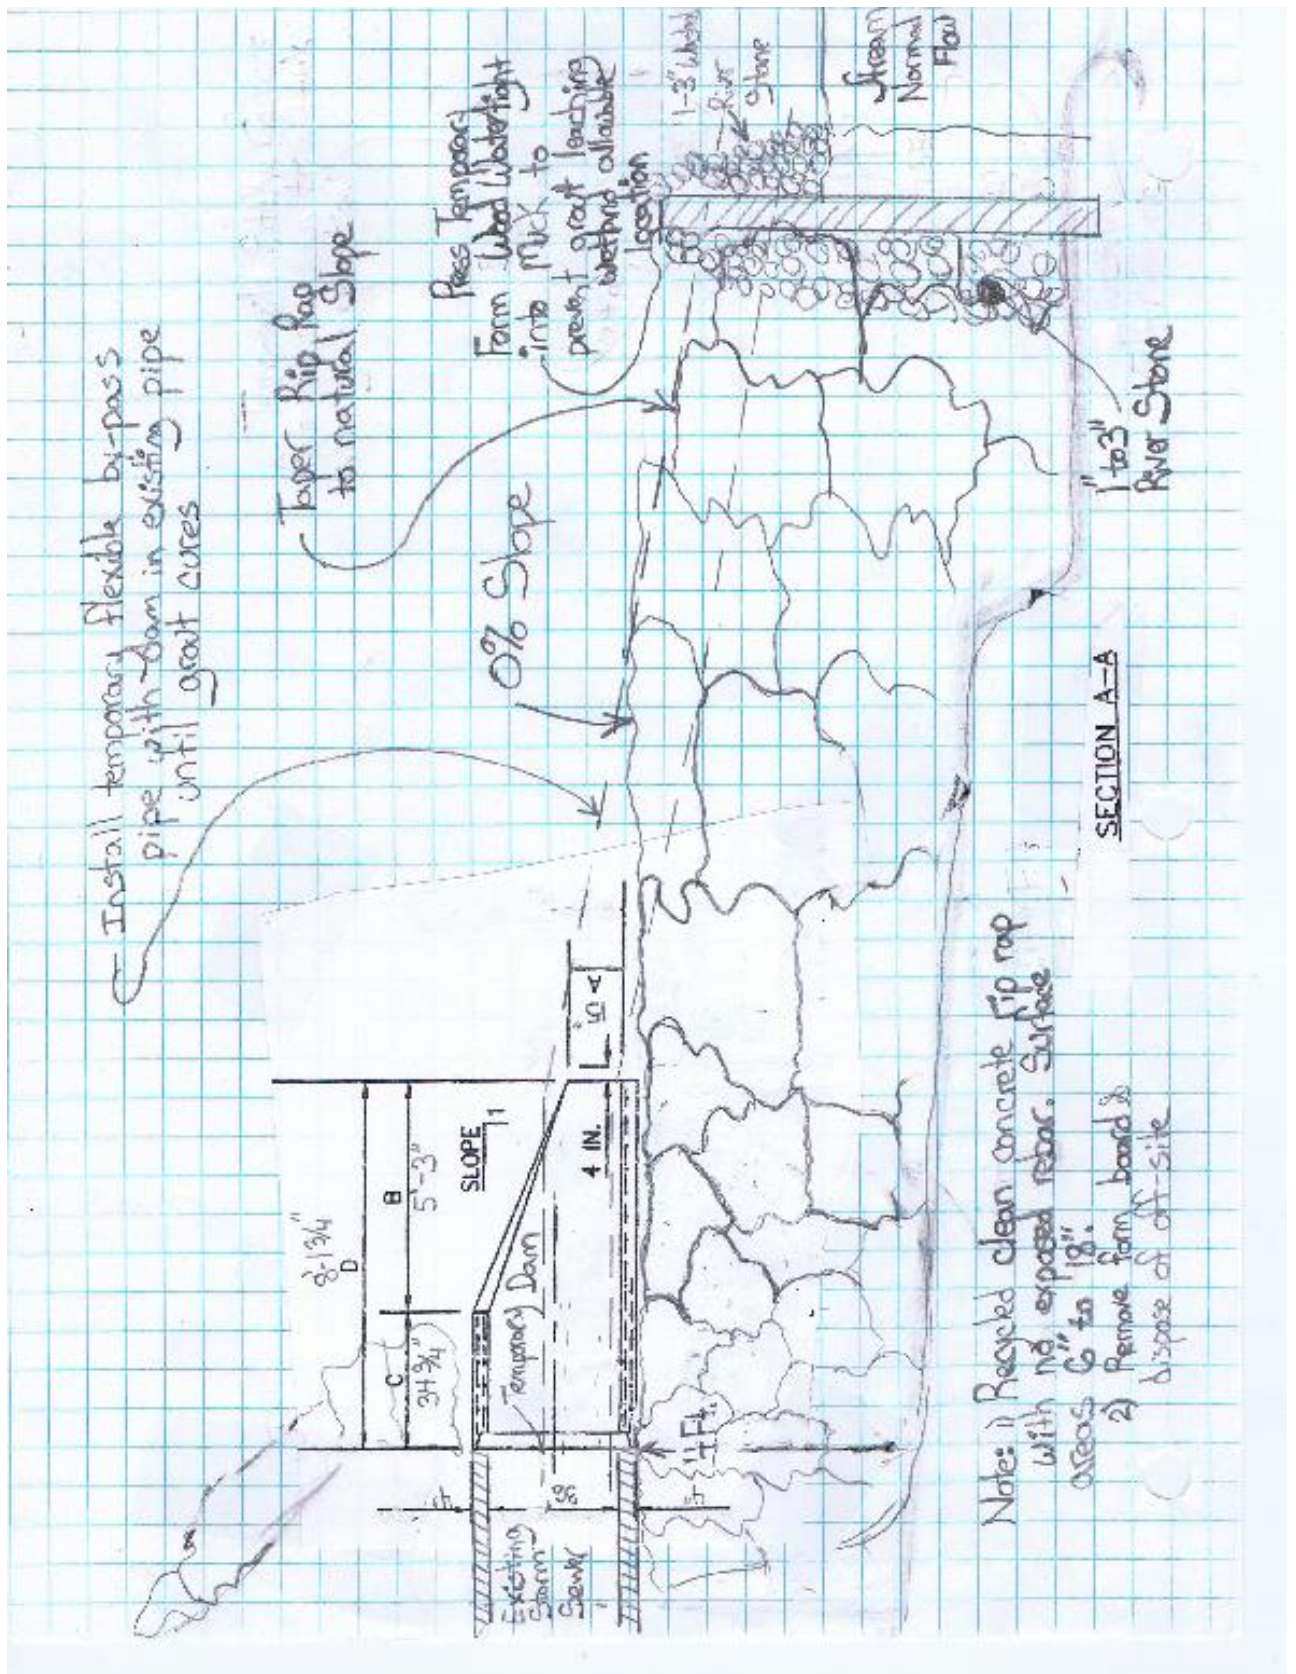 Install temporary flexible by-pass
pipe with dam in existing pipe
until grout cures
Taper Rip Rap
to natural Slope
Press Temporary
Form Wood Watertight
into Muck to
prevent grout leaching
wetland
Location
1-3"
River
Stone
Stream
Normal
Flow
0% Slope
8'-1 3/4"
D
C
34 3/4"
B
5'-3"
SLOPE
1
Temporary Dam
4 IN.
A
Existing
Storm
Sewer
4"
4"
4 Ft.
1" to 3"
River Stone
SECTION A-A
Note: 1) Recycled clean concrete rip rap
with no exposed rebar. Surface
areas 6" to 18".
2) Remove form board &
dispose of off-site